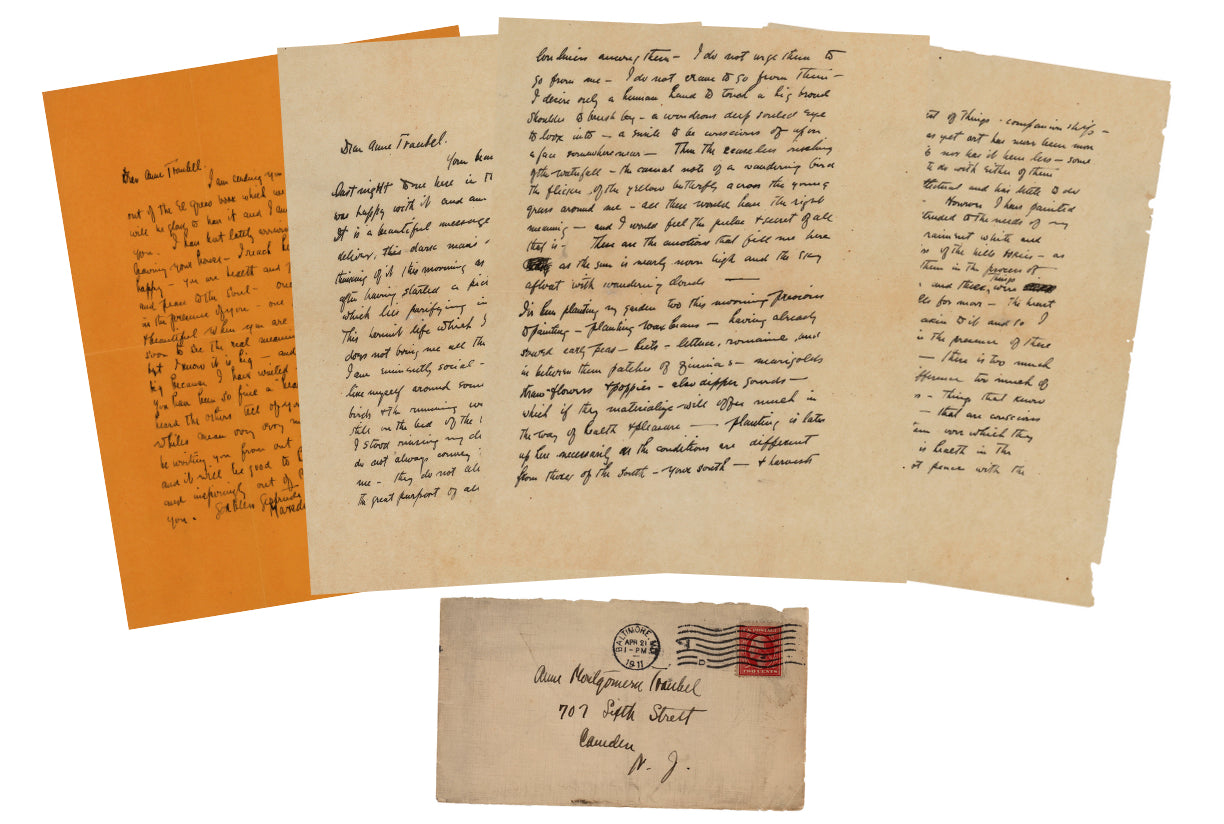 Dear Anne Traubel.
I am sending you
out of the El Greco book which we
will be glad to have it and I am
you. I has but lately
leaving your house - I reach
happy - you are health and
and peace to the Soul - one
in the presence of you - one
& beautiful when you are
soon to see the real meaning
but I know it is big - and
big because I have waited
you have been so fine a
heard the others tell of you
whiles mean very very
be writing you from out
and it will be good to
and inspiringly out of
you. God bless Gertrude
Dear Anne Traubel.
Your
last night to me here in
was happy with it and
It is a beautiful message
deliver, this dance
thinking of it this morning as
after having started a
which lies purifying in
This hermit life which
does not bring me all the
I am eminently social -
like myself around some
birds & the running
still in the bed of the
I stood rinsing my
do not always convey
me - they do not
the great purport of
loneliness among them - I do not urge them to
go from me - I do not crave to go from them -
I desire only a human hand to touch a big broad
shoulder to brush by - a wondrous deep souled eye
to look into - a smile to be conscious of upon
a face somewhere near - Then the ceaseless rushing
of the waterfall - the casual note of a wandering bird
the flicker of the yellow butterfly across the young
grass around me - all these would have the right
meaning - and I would feel the pulse & secret of all
that is - These are the emotions that fill me here
as the sun is nearly noon high and the sky
afloat with wandering clouds -
Ive been planting my garden too this morning previous
to painting - planting wax beans - having already
sowed early peas - beets - lettuce, romaine, and
in between them patches of zinnias - marigolds
straw-flowers & poppies - also dipper gourds -
which if they materialize will offer much in
the way of health & pleasure - planting is later
up here necessarily as the conditions are different
from those of the south - your south - & harvests
of things - companionships -
as yet art has never been more
nor has it been less - some
to do with either of them
and has little to do
- However I have painted
to the needs of my
raiment white and
of the hills
them in the process of
things
and these were
for more - the heart
akin to it and so I
in the presence of these
- there is too much
too much of
- things that know
- that are conscious
over which they
is health in the
at peace with the
BALTIMORE, MD.
APR 21
1-PM
1911
D
U.S. POSTAGE
TWO CENTS
Anne Montgomerie Traubel
707 Sixth Street
Camden
N. J.